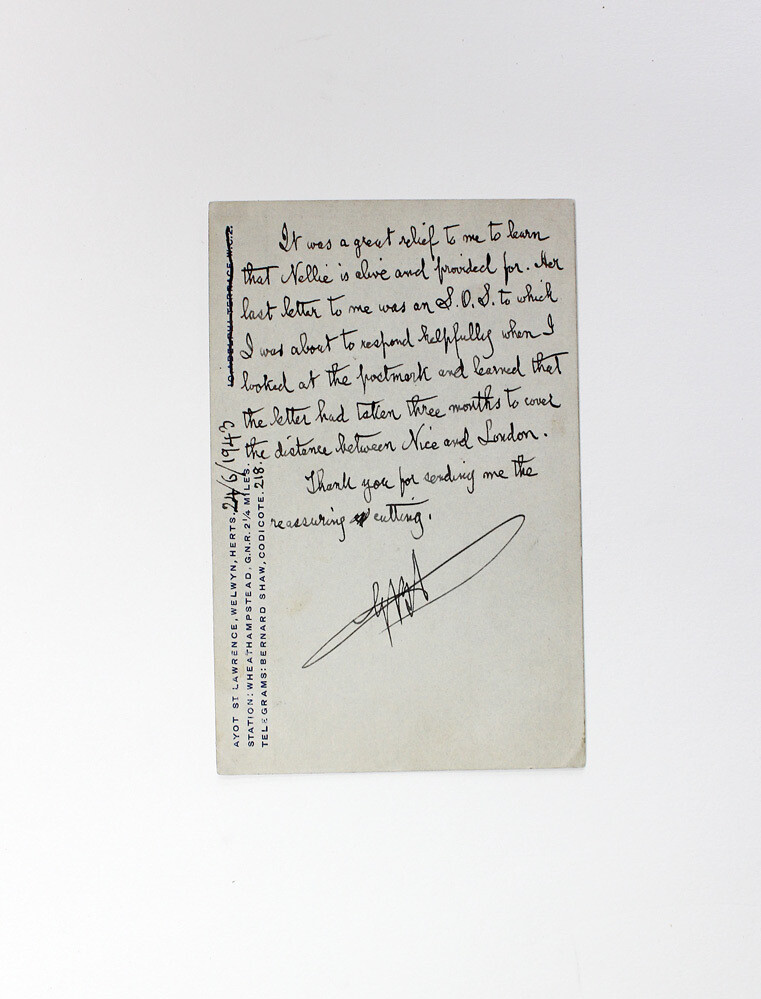 10 ADELPHI TERRACE W.C.2.
AYOT ST LAWRENCE, WELWYN, HERTS. 24/6/1943
STATION: WHEATHAMPSTEAD, G.N.R. 2¼ MILES.
TELEGRAMS: BERNARD SHAW, CODICOTE. 218.
It was a great relief to me to learn
that Nellie is alive and provided for. Her
last letter to me was an S.O.S. to which
I was about to respond helpfully when I
looked at the postmark and learned that
the letter had taken three months to cover
the distance between Nice and London.
Thank you for sending me the
reassuring cutting.
GBS